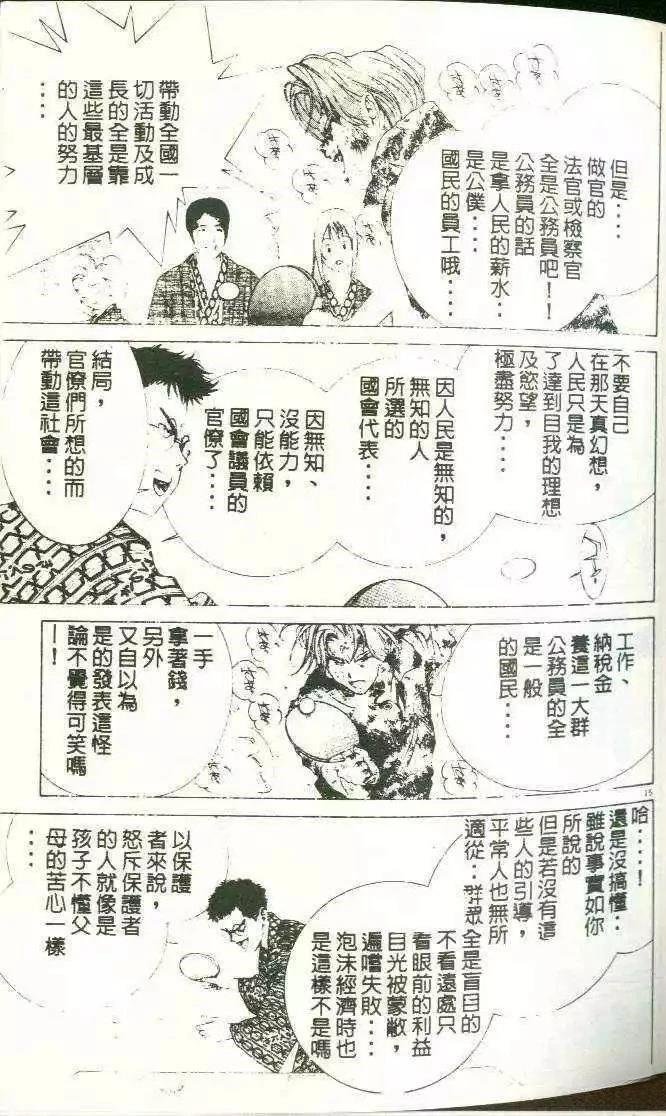 但是‥‥
做官的
法官或檢察官
全是公務員吧！！
公務員的話
是拿人民的薪水‥
是公僕‥‥
國民的員工哦‥‥
帶動全國一
切活動及成
長的全是靠
這些最基層
的人的努力
‥‥
不要自己
在那天真幻想，
人民只是為
了達到自我的理想
及慾望，
極盡努力‥‥
因人民是無知的，
無知的人
所選的
國會代表‥‥
因無知、
沒能力，
只能依賴
國會議員的
官僚了‥‥
結局，
官僚們所想的而
帶動這社會‥‥
工作、
納稅金
養這一大群
公務員的全
是一般
的國民‥‥
一手
拿著錢，
另外
又自以為
是的發表這怪
論不覺得可笑嗎
—！
15
哈‥‥！
還是沒搞懂‥
雖說事實如你
所說的
但是若沒有這
些人的引導，
平常人也無所
適從‥群眾
全是盲目的
不看遠處只
看眼前的利益
目光被蒙敝，
遍嚐失敗‥‥
泡沫經濟時也
是這樣不是嗎
以保護
者來說，
怒斥保護者
的人就像是
孩子不懂父
母的苦心一樣
‥‥